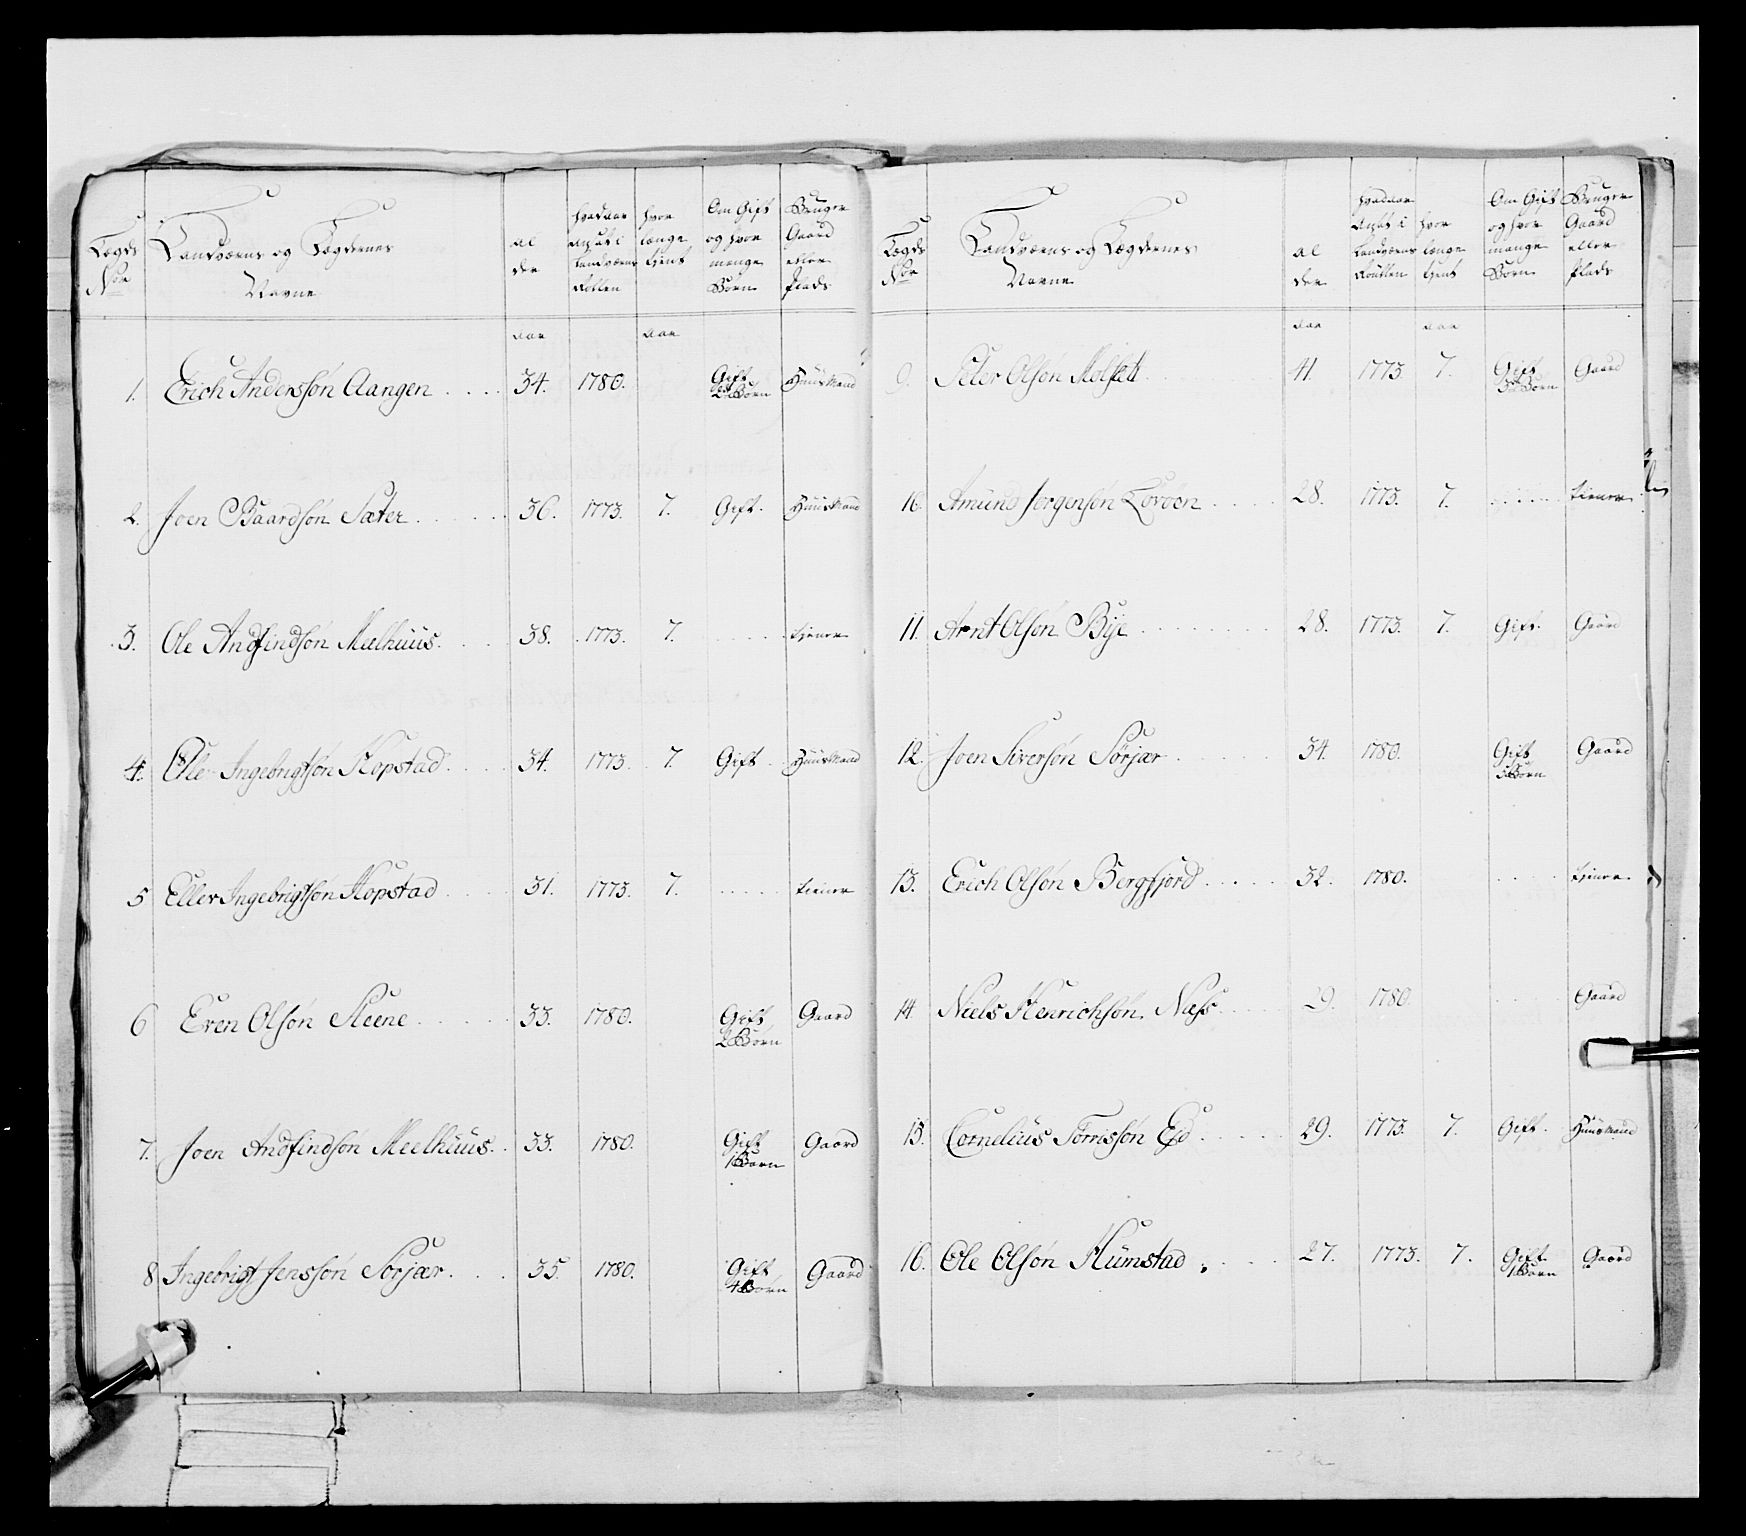 Lægds Nor
Landværns og Lægdernes Navne
al der
hvad aar ansat i Landværns Rollen
hvor længe tient
Om Gift og hvor mange Børn
Bruger Gaard eller Plads
aar aar
1. Erich Anderssøn Aangen . . . . 34. 1780. Gift 2 Børn Huusmand
2. Joen Baardsøn Sæter . . . . . 36. 1773. 7. Gift. Huusmand
3. Ole Andfindsøn Meelhuus. . . . 38. 1773. 7. . . . . . tiener
4. Ole Ingebrigtsøn Hopstad . . . . 34. 1773. 7. Gift . Huusmand
5 Eller Ingebrigtsøn Hopstad . . . . 31. 1773. 7. . . . . . tiener
6 Even Olsøn Steene . . . . . 33. 1780. Gift 2 Børn Gaard
7. Joen Andfindsøn Meelhuus. . 33. 1780. Gift 1 Barn Gaard
8 Ingebrigt Jenssøn Sørjær . . . 35. 1780. Gift 4 Børn Gaard
Lægds Nor
Landværns og Lægdernes Navne
al der
hvad aar ansat i Landværns Roullen
hvor længe tient
Om Gift og hvor mange Børn
Bruger Gaard eller Plads
aar aar
9. Peter Olsøn Molsett . . . . 41. 1773. 7. Gift 3 Børn Gaard
10. Amund Jørgensøn Lovøen . . . . 28. 1773. 7. . . . . . tiener
11. Arnt Olsøn Bije . . . . . . . . 28. 1773. 7. Gift. Gaard
12. Joen Siversøn Sørjær . . . . . . 34. 1780. Gift Børn Gaard
13. Erich Olsøn Bergfjord . . . . . 32. 1780. . . . . tiener
14 Niels Henrichsøn Næss . . . . 29. 1780. . . . . Gaard
15. Cornelius Torrissøn Eid . . . . . 29. 1773. 7. Gift. Huusmand
16. Ole Olsøn Humstad . . . . . 27. 1773. 7. Gift 1 Barn Gaard